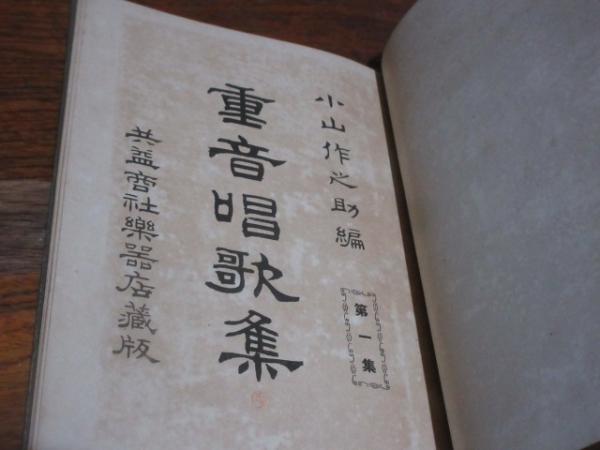 小山作之助編
重音唱歌集
第一集
共益商社樂器店藏版